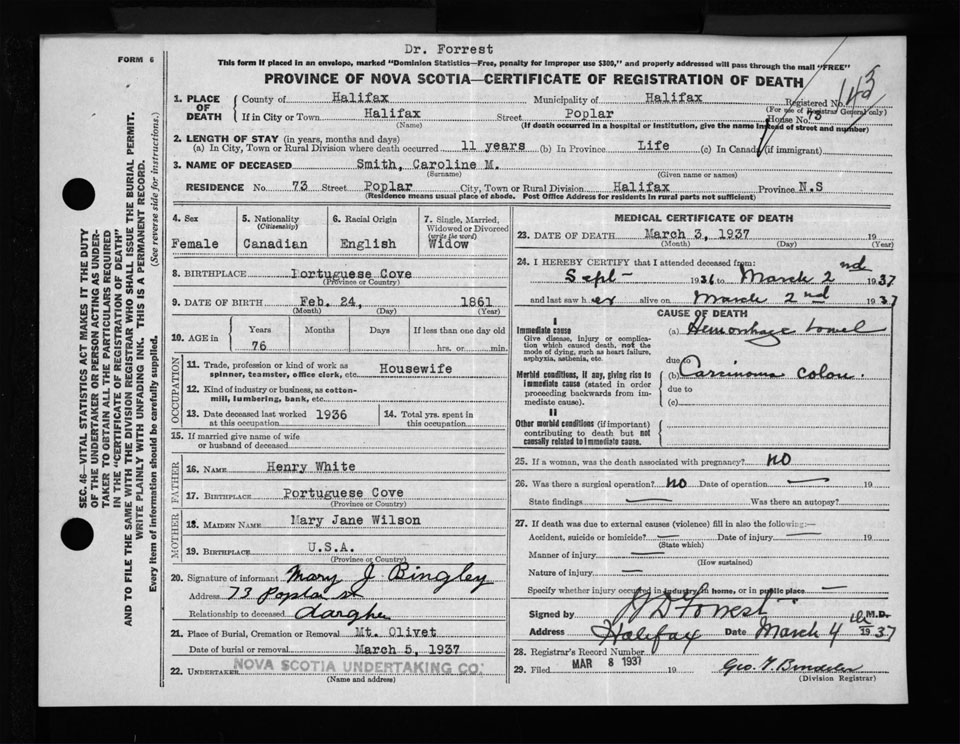 Dr. Forrest
FORM 6
This form if placed in an envelope, marked "Dominion Statistics—Free, penalty for improper use $300," and properly addressed will pass through the mail "FREE"
PROVINCE OF NOVA SCOTIA—CERTIFICATE OF REGISTRATION OF DEATH
143
SEC. 46—VITAL STATISTICS ACT MAKES IT THE DUTY
OF THE UNDERTAKER OR PERSON ACTING AS UNDER-
TAKER TO OBTAIN ALL THE PARTICULARS REQUIRED
IN THE "CERTIFICATE OF REGISTRATION OF DEATH"
AND TO FILE THE SAME WITH THE DIVISION REGISTRAR WHO SHALL ISSUE THE BURIAL PERMIT.
WRITE PLAINLY WITH UNFADING INK. THIS IS A PERMANENT RECORD.
Every item of information should be carefully supplied. (See reverse side for instructions.)
1. PLACE OF DEATH
County of Halifax Municipality of Halifax Registered No.
(For use of Registrar General only)
If in City or Town Halifax Street Poplar House No. 73
(Name) (If death occurred in a hospital or institution, give the name instead of street and number)
2. LENGTH OF STAY (in years, months and days)
(a) In City, Town or Rural Division where death occurred 11 years (b) In Province Life (c) In Canada (if immigrant)
3. NAME OF DECEASED Smith, Caroline M.
(Surname) (Given name or names)
RESIDENCE No. 73 Street Poplar City, Town or Rural Division Halifax Province N.S
(Residence means usual place of abode. Post Office Address for residents in rural parts not sufficient)
4. Sex Female
5. Nationality (Citizenship) Canadian
6. Racial Origin English
7. Single, Married, Widowed or Divorced (write the word) Widow
8. BIRTHPLACE Portuguese Cove
(Province or Country)
9. DATE OF BIRTH Feb. 24, 1861
(Month) (Day) (Year)
10. AGE in Years 76 Months Days If less than one day old hrs. or min.
OCCUPATION
11. Trade, profession or kind of work as spinner, teamster, office clerk, etc. Housewife
12. Kind of industry or business, as cotton-mill, lumbering, bank, etc.
13. Date deceased last worked at this occupation 1936
14. Total yrs. spent in this occupation
15. If married give name of wife or husband of deceased
FATHER
16. NAME Henry White
17. BIRTHPLACE Portuguese Cove
(Province or Country)
MOTHER
18. MAIDEN NAME Mary Jane Wilson
19. BIRTHPLACE U.S.A.
(Province or Country)
20. Signature of informant Mary J Bingley
Address 73 Poplar st
Relationship to deceased
21. Place of Burial, Cremation or Removal Mt. Olivet
Date of burial or removal March 5, 1937
22. UNDERTAKER NOVA SCOTIA UNDERTAKING CO.
(Name and address)
MEDICAL CERTIFICATE OF DEATH
23. DATE OF DEATH March 3, 1937 19
(Month) (Day) (Year)
24. I HEREBY CERTIFY that I attended deceased from:
Sept - 1936 to March 2nd 1937
and last saw her alive on March 2nd 1937
CAUSE OF DEATH
I
Immediate cause
Give disease, injury or complication which caused death, not the mode of dying, such as heart failure, asphyxia, asthenia, etc.
(a) Hemorrhage bowel
due to
Morbid conditions, if any, giving rise to immediate cause (stated in order proceeding backwards from immediate cause).
(b) Carcinoma colon.
due to
(c)
II
Other morbid conditions (if important) contributing to death but not causally related to immediate cause.
25. If a woman, was the death associated with pregnancy? NO
26. Was there a surgical operation? NO Date of operation — 19
State findings — Was there an autopsy?
27. If death was due to external causes (violence) fill in also the following:—
Accident, suicide or homicide? — Date of injury — 19
(State which)
Manner of injury —
(How sustained)
Nature of injury —
Specify whether injury occurred in industry, in home, or in public place —
Signed by J D Forrest M.D.
Address Halifax Date March 4th 1937
28. Registrar's Record Number
29. Filed MAR 8 1937 19
(Division Registrar)